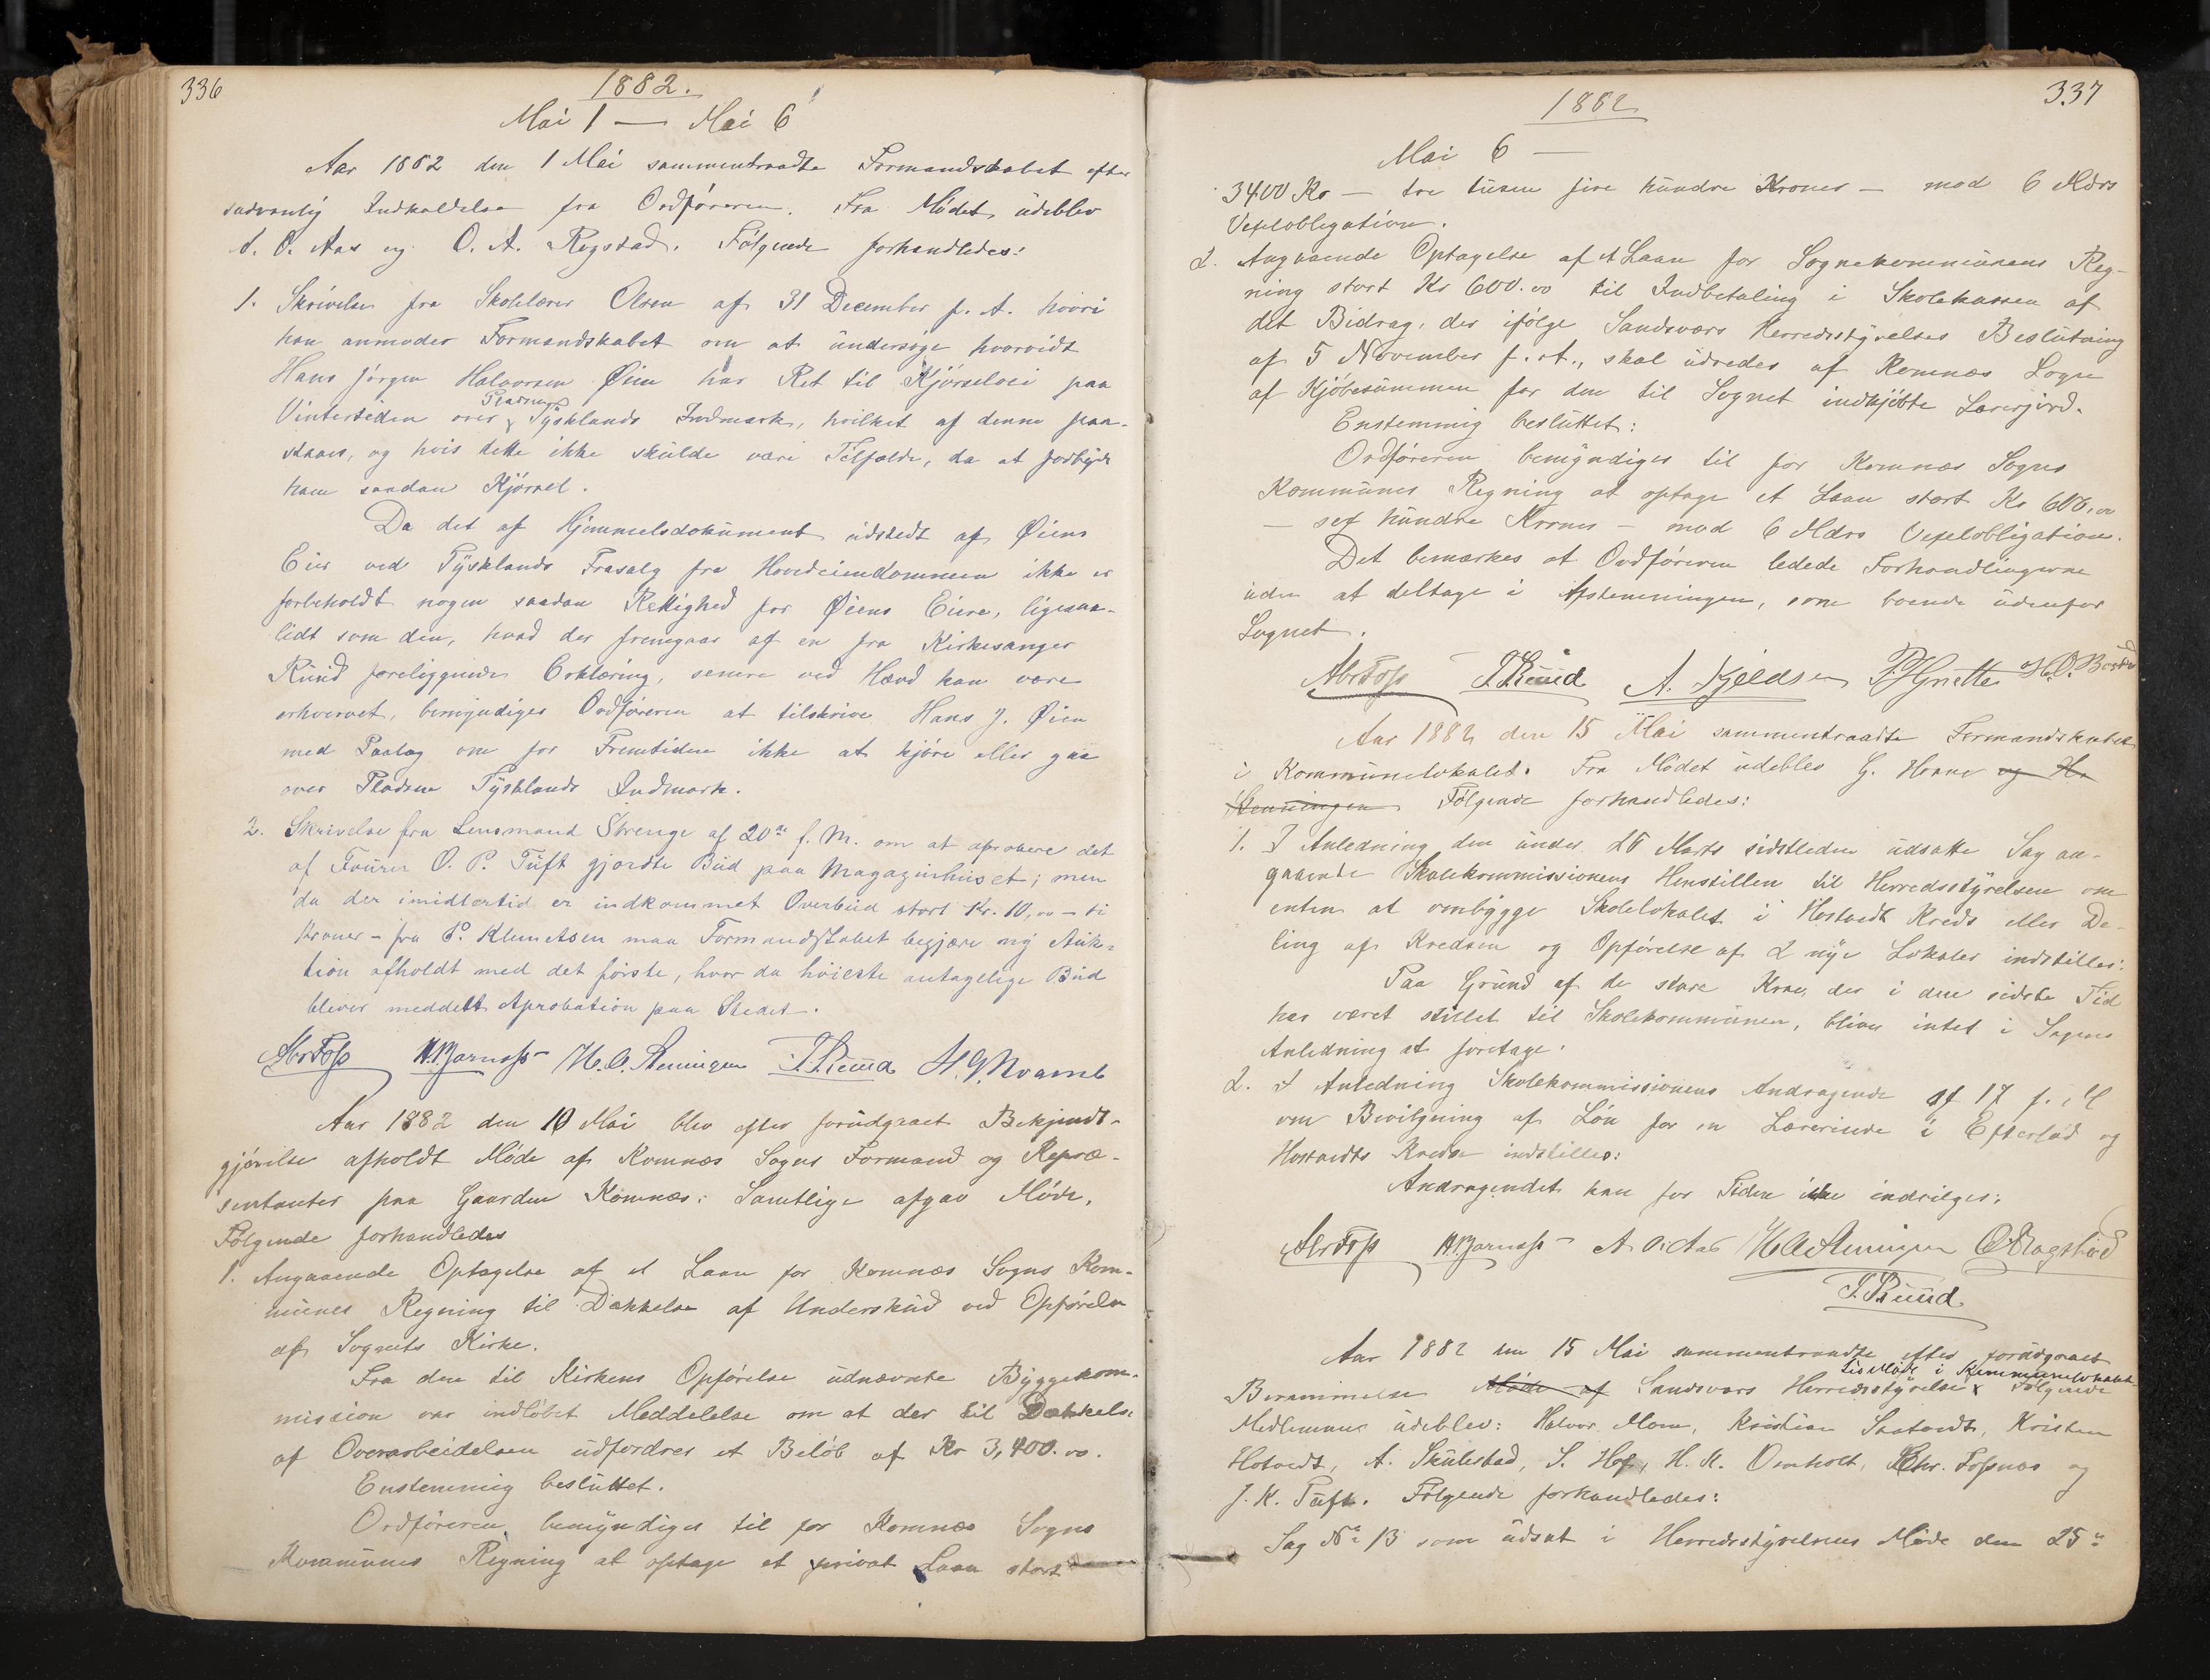 336
1882.
Mai 1 — Mai 6
Aar 1882 den 1 Mai sammentraadte Formandskabet efter
sædvanlig Indkaldelse fra Ordføreren. Fra Mødet udeblev
A. O. Aas og O. A. Rogstad. Følgende forhandledes:
1. Skrivelse fra Skolelærer Olsen af 31 December f. A. hvori
han anmoder Formandskabet om at undersøge hvorvidt
Hans Jørgen Halvorsen Øien har Ret til Kjørselvei paa
Pladsen
Vintertiden over Tysklands Indmark, hvilket af denne paa-
staaes, og hvis dette ikke skulde være Tilfælde, da at forbyde
ham saadan Kjørsel.
Da det af Hjemmelsdokument udstedt af Øiens
Eier ved Tysklands Frasalg fra Hovedeiendommen ikke er
forbeholdt nogen saadan Rettighed for Øiens Eiere, ligesaa-
lidt som den, hvad der fremgaar af en fra Kirkesanger
Ruud foreliggende Erklæring, senere ved Hævd kan være
erhvervet, bemyndiges Ordføreren at tilskrive Hans J. Øien
med Paalæg om for Fremtiden ikke at kjøre eller gaa
over Pladsen Tysklands Indmark.
2. Skrivelse fra Lensmand Strenge af 20de f. M. om at aprobere det
af Fourer O. P. Tuft gjordte Bud paa Magazinhuset; men
da der imidlertid er indkommet Overbud stort Kr. 10,00 – ti
Kroner – fra P. Klemetsen maa Formandskabet begjære ny Auk-
tion afholdt med det første, hvor da høieste antagelige Bud
bliver meddelt Aprobation paa Stedet.
Abr Foss H. Bjarnass H. O. Stenningen T. Ruud H. G. Kvarme
Aar 1882 den 10 Mai blev efter forudgaaet Bekjendt-
gjørelse afholdt Møde af Komnæs Sogns Formænd og Repræ-
sentanter paa Gaarden Komnæs. Samtlige afgav Møde.
Følgende forhandledes
1. Angaaende Optagelse af et Laan for Komnæs Sogns Kom-
munes Regning til Dækkelse af Underskud ved Opførelse
af Sognets Kirke.
Fra den til Kirkens Opførelse udnævnte Byggekom-
mission var indløbet Meddelelse om at der til Dækkelse
af Overarbeidelsen udfordres et Beløb af Kr 3,400.00.
Enstemmig besluttet.
Ordføreren bemyndiges til for Komnæs Sogns
Kommunes Regning at optage et privat Laan stort
337
1882
Mai 6 —
3400 Kr — tre tusen fire hundre Kroner — mod 6 Mdrs
Vexelobligation.
2. Angaaende Optagelse af et Laan for Sognekommunens Reg-
ning stort Kr 600.00 til Indbetaling i Skolekassen af
det Bidrag, der ifølge Sandsværs Herredsstyrelses Beslutning
af 5 November f. A., skal udredes af Komnæs Sogn
af Kjøbesummen for den til Sognet indkjøbte Lærerjord.
Enstemmig besluttet:
Ordføreren bemyndiges til for Komnæs Sogns
Kommunes Regning at optage et Laan stort Kr 600,00
— sex hundre Kroner — mod 6 Mdrs Vexelobligation.
Det bemærkes at Ordføreren ledede Forhandlingerne
uden at deltage i Afstemningen, som boende udenfor
Sognet.
Abr Foss T. Ruud A. Kjeldsen
Aar 1882 den 15 Mai sammentraadte Formandskabet
i Kommunelokalet. Fra Mødet udeblev G. og H.
Stenningen Følgende forhandledes:
1. I Anledning den under 26 Marts sidstleden udsatte Sag an-
gaaende Skolekommissionens Henstillen til Herredsstyrelsen om
enten at ombygge Skolelokalet i Hostvedt Kreds eller De-
ling af Kredsen og Opførelse af 2 nye Lokaler indstilles:
Paa Grund af de store Krav, der i den sidste Tid
har været stillet til Skolekommunen, bliver intet i Sagens
Anledning at foretage.
2. I Anledning Skolekommissionens Andragende af 17 f. M
om Bevilgning af Løn for en Lærerinde i Efteløt og
Hostvedts Kredse indstilles:
Andragendet kan for Tiden ikke indvilges.
Abr Foss H. Bjarnass A. O. Aas H. O. Stenningen O. A. Rogstad
T. Ruud
Aar 1882 den 15 Mai sammentraadte efter forudgaaet
til Møde i Kommunelokalet.
Berammelse Møde af Sandsværs Herredsstyrelse Følgende
Medlemmer udeblev: Halvor Moen, Kristian Saatvedt, Kristen
Hotvedt, A. Skulestad, S. Hof, H. K. Omholt, Chr. Fossnæs og
J. K. Tuft. Følgende forhandledes:
Sag No 13 som udsat i Herredsstyrelsens Møde den 25de